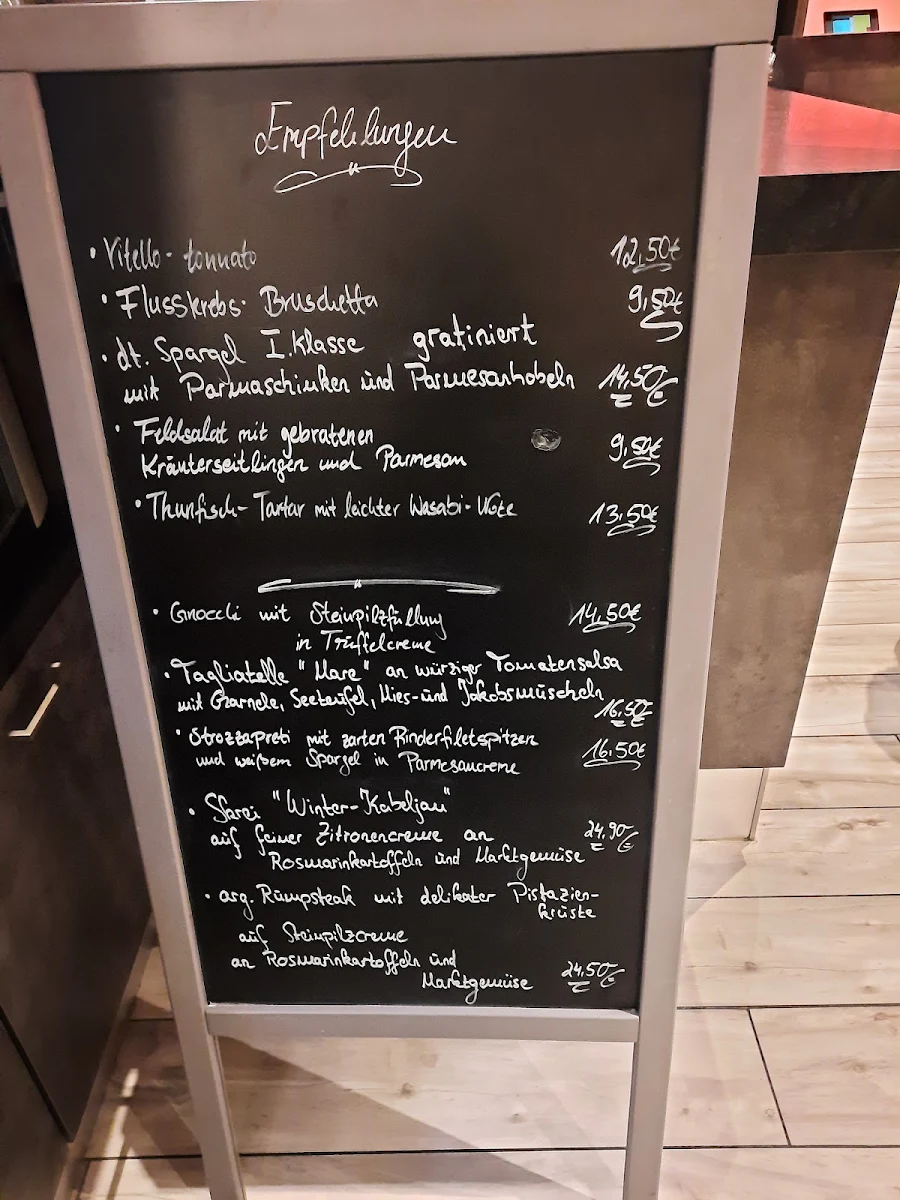 Empfehlungen
• Vitello- tonnato 12,50€
• Flusskrebs- Bruschetta 9,50€
• dt. Spargel I. Klasse gratiniert
mit Parmaschinken und Parmesanhobeln 14,50€
• Feldsalat mit gebratenen
Kräuterseitlingen und Parmesan 9,50€
• Thunfisch- Tartar mit leichter Wasabi- Note 13,50€
• Gnocchi mit Steinpilzfüllung 14,50€
in Trüffelcreme
• Tagliatelle "Mare" an würziger Tomatensalsa
mit Garnele, Seeteufel, Mies- und Jakobsmuscheln
16,50€
• Strozzapreti mit zarten Rinderfiletspitzen 16,50€
und weißem Spargel in Parmesancreme
• Skrei "Winter-Kabeljau"
auf feiner Zitronencreme an 24,90€
Rosmarinkartoffeln und Marktgemüse
• arg. Rumpsteak mit delikater Pistazien-
kruste
auf Steinpilzcreme
an Rosmarinkartoffeln und
Marktgemüse 24,50€